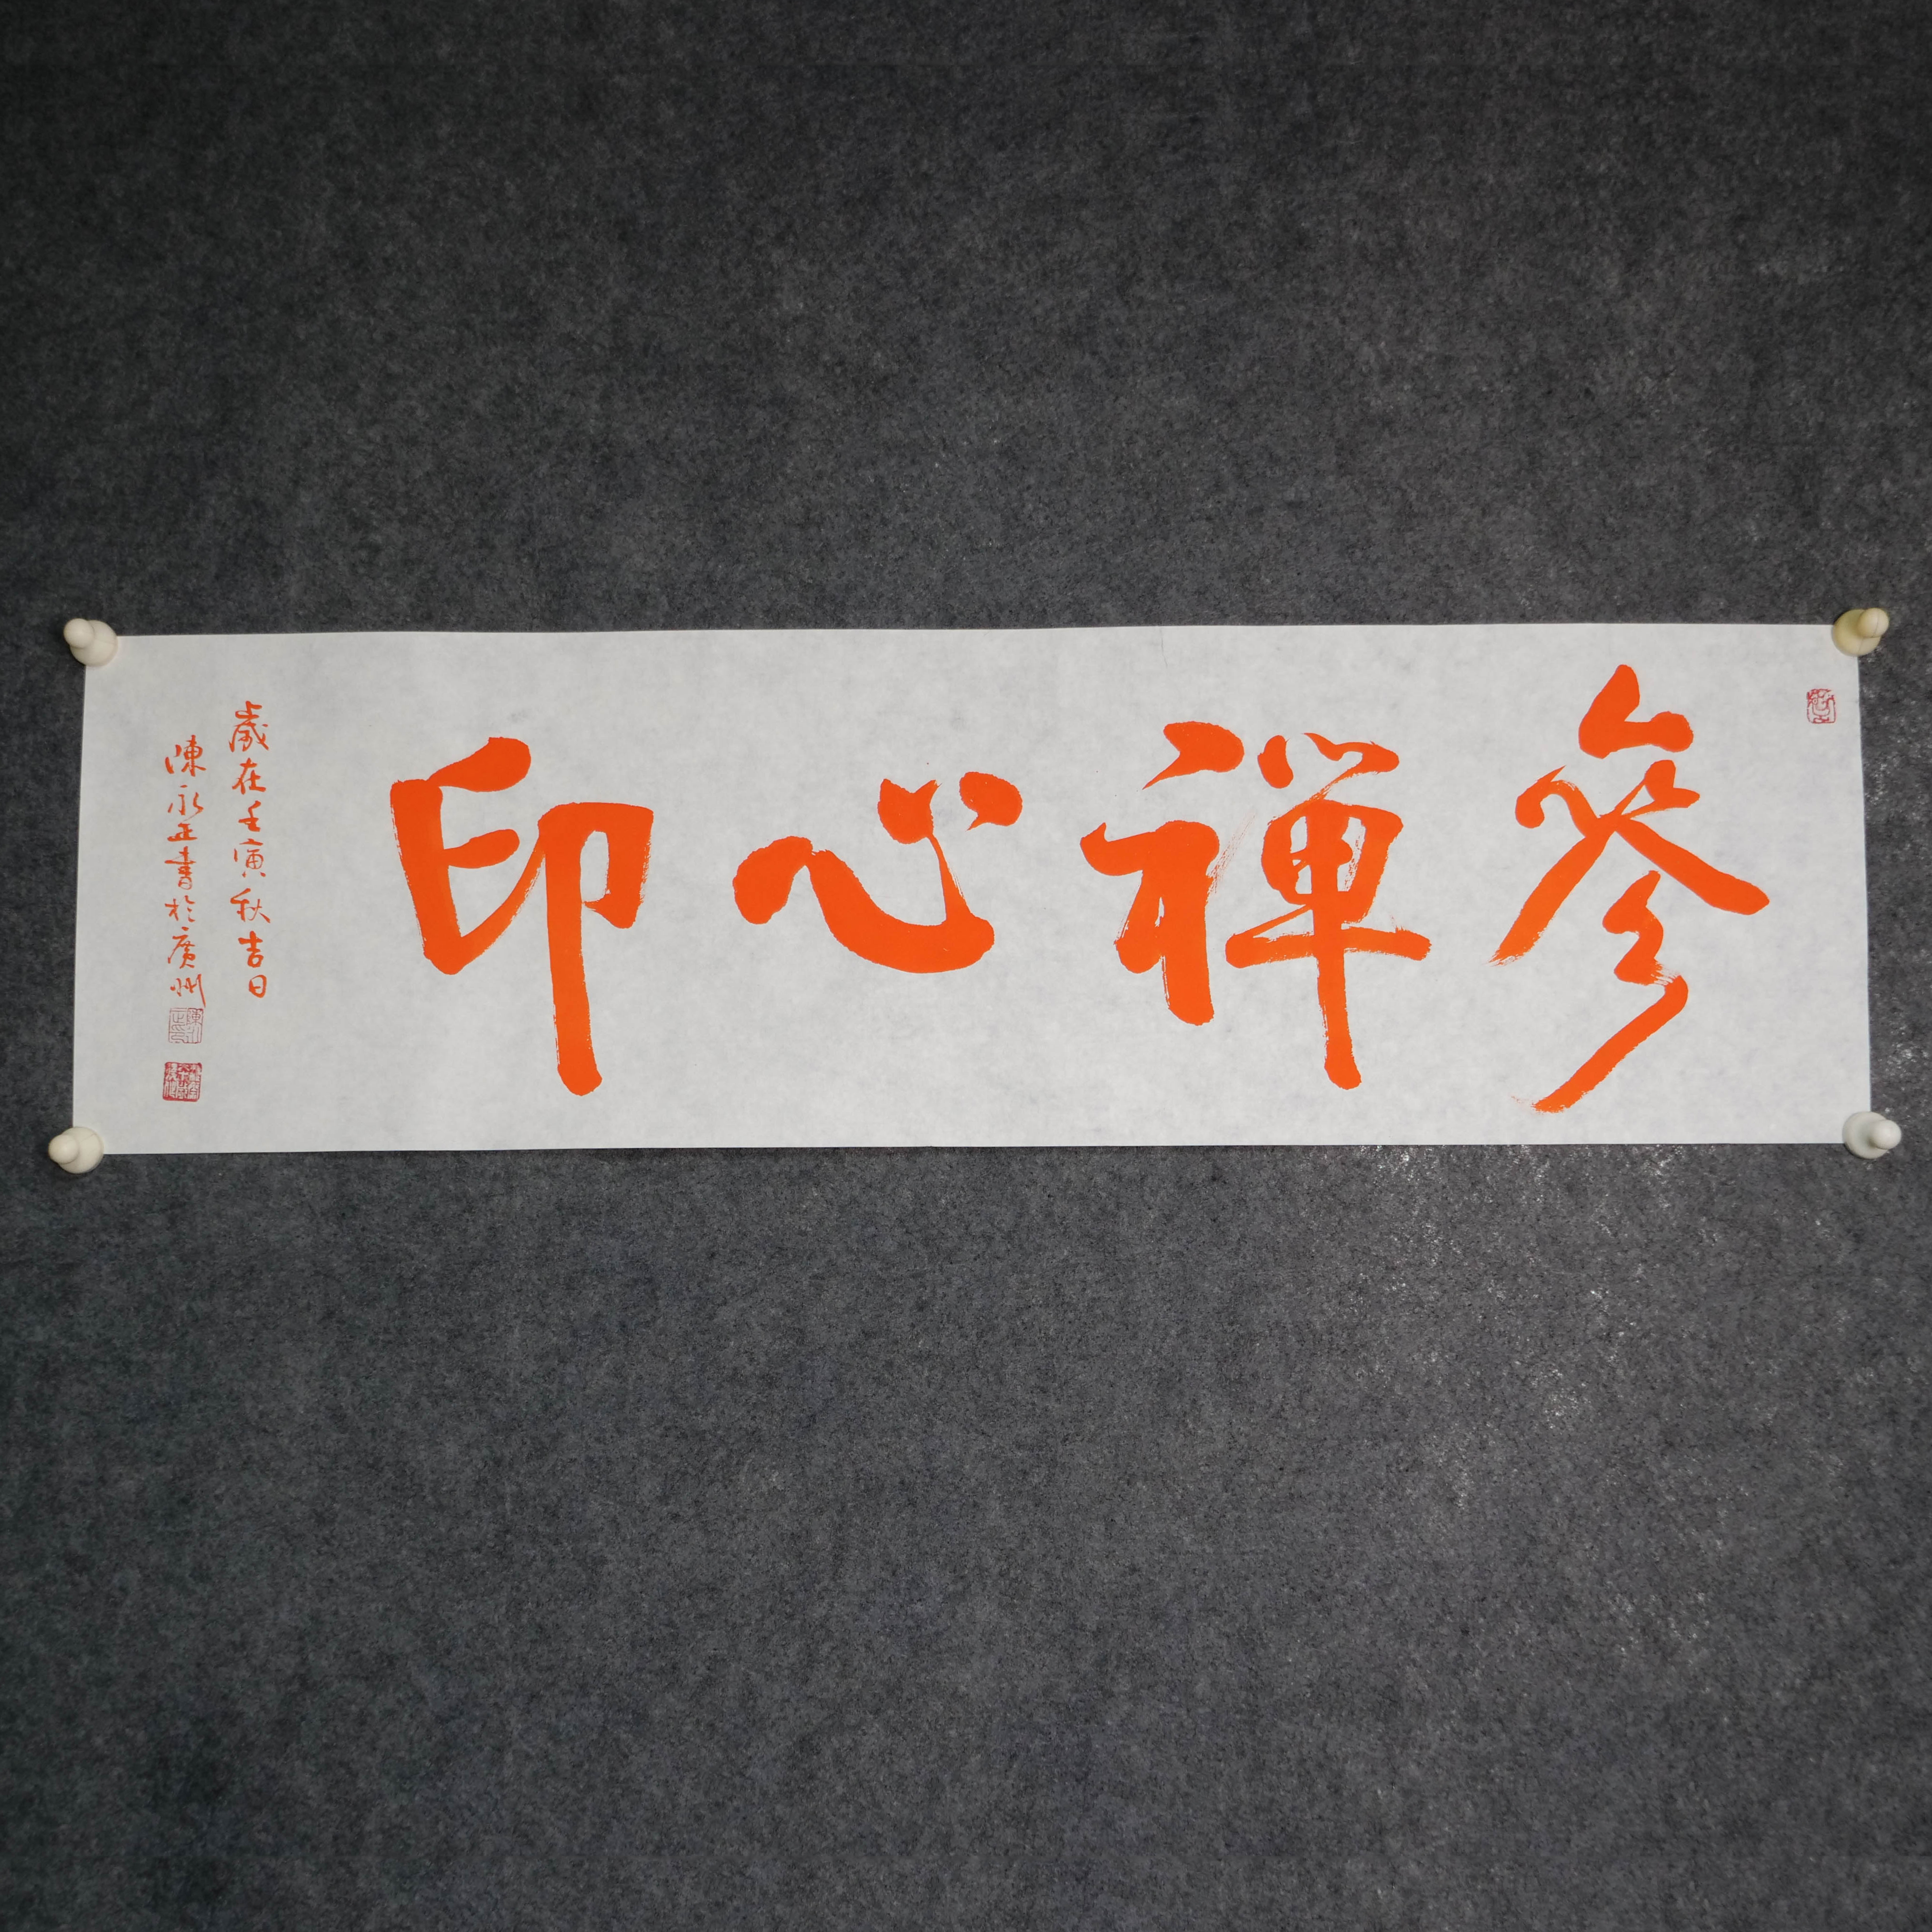 參禪心印
歲在壬寅秋吉日
陳永正書於廣州